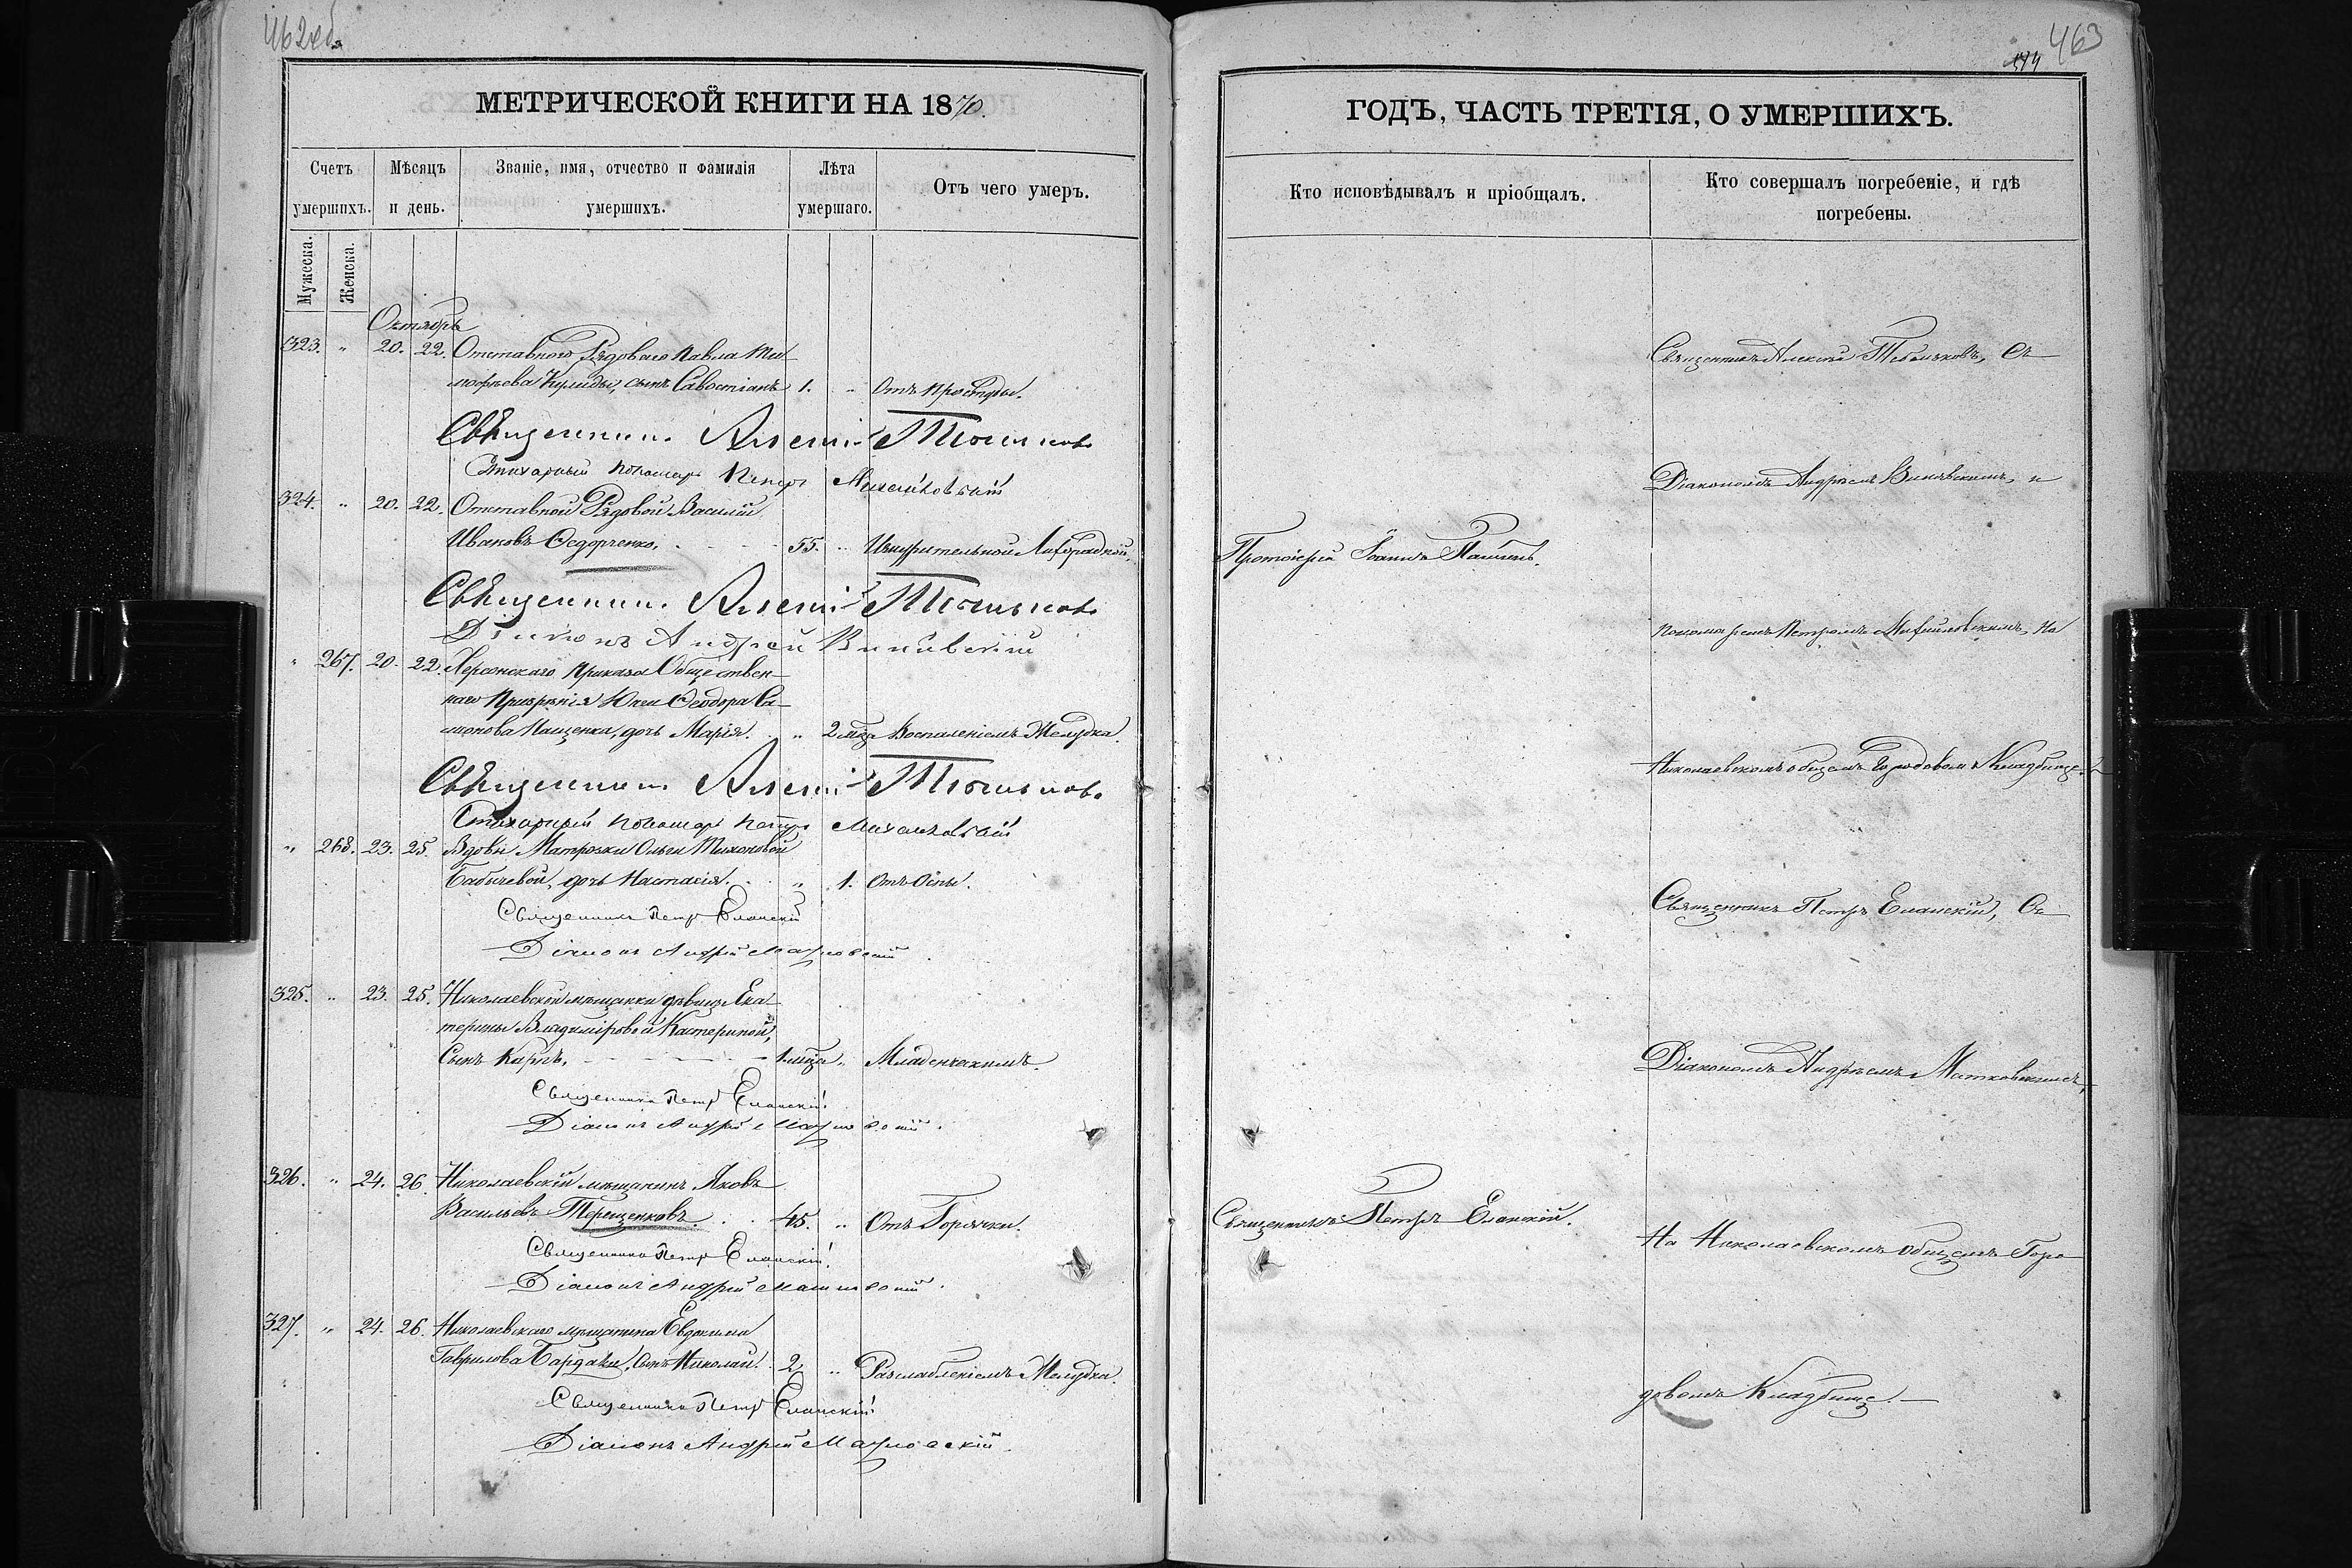 462об.
МЕТРИЧЕСКОЙ КНИГИ НА 1870.
Счетъ умершихъ.
Мѣсяцъ и день.
Званіе, имя, отчество и фамилія умершихъ.
Лѣта умершаго.
Отъ чего умеръ.
Мужеска.
Женска.
Октябрь
323. " 20. 22. Отставнаго Рядоваго Павла Тим-
офѣева Кулиды, сынъ Савостіанъ 1. " Отъ простуды.
Священникъ Алексій
Стихарный пономарь Петръ Михайловскій
324. " 20. 22. Отставной Рядовой Василій
Ивановъ Ѳедорченко. 55. " Изнурительной Лихорадкой.
Священникъ Алексій
Діаконъ Андрей
" 267. 20. 22. Херсонскаго Приказа Обществен-
наго Призрѣнія Юнси Ѳеодора Са-
монова Пащенка, дочь Марія. " 2 мѣца Воспаленіемъ Желудка.
Священникъ Алексій
Стихарный пономарь Петръ Михайловскій
" 268. 23. 25. Вдовы Матроски Ольги Тихоновой
Бабичевой, дочь Настасія. " 1. Отъ Оспы.
Священникъ Петръ Еланскій
Діаконъ Андрей Матковскій
325. " 23. 25. Николаевской мѣщанки дѣвицы Ека-
терины Владиміровой Кастериной,
Сынъ Карпъ. 1 мѣца " Младенческимъ.
Священникъ Петръ Еланскій
Діаконъ Андрей Матковскій.
326. " 24. 26. Николаевскій мѣщанинъ Яковъ
Васильевъ Терещенковъ. 45. " Отъ Горячки.
Священникъ Петръ Еланскій
Діаконъ Андрей Матковскій.
327. " 24. 26. Николаевскаго мѣщанина Евдокима
Гаврилова Бардачи, сынъ Николай. 2 " Разслабленіемъ Желудка.
Священникъ Петръ Еланскій
Діаконъ Андрей Матковскій.
463
ГОДЪ, ЧАСТЬ ТРЕТІЯ, О УМЕРШИХЪ.
Кто исповѣдывалъ и пріобщалъ.
Кто совершалъ погребеніе, и гдѣ погребены.
Священникъ Алексій Съ
Діакономъ Андреемъ и
Протоіерей Іоаннъ
пономаремъ Петромъ Михайловскимъ, На
Николаевскомъ общемъ Городовомъ Кладбище.
Священникъ Петръ Еланскій, Съ
Діакономъ Андреемъ Матковскимъ,
Священникъ Петръ Еланскій.
На Николаевскомъ общемъ Горо-
довомъ Кладбище.